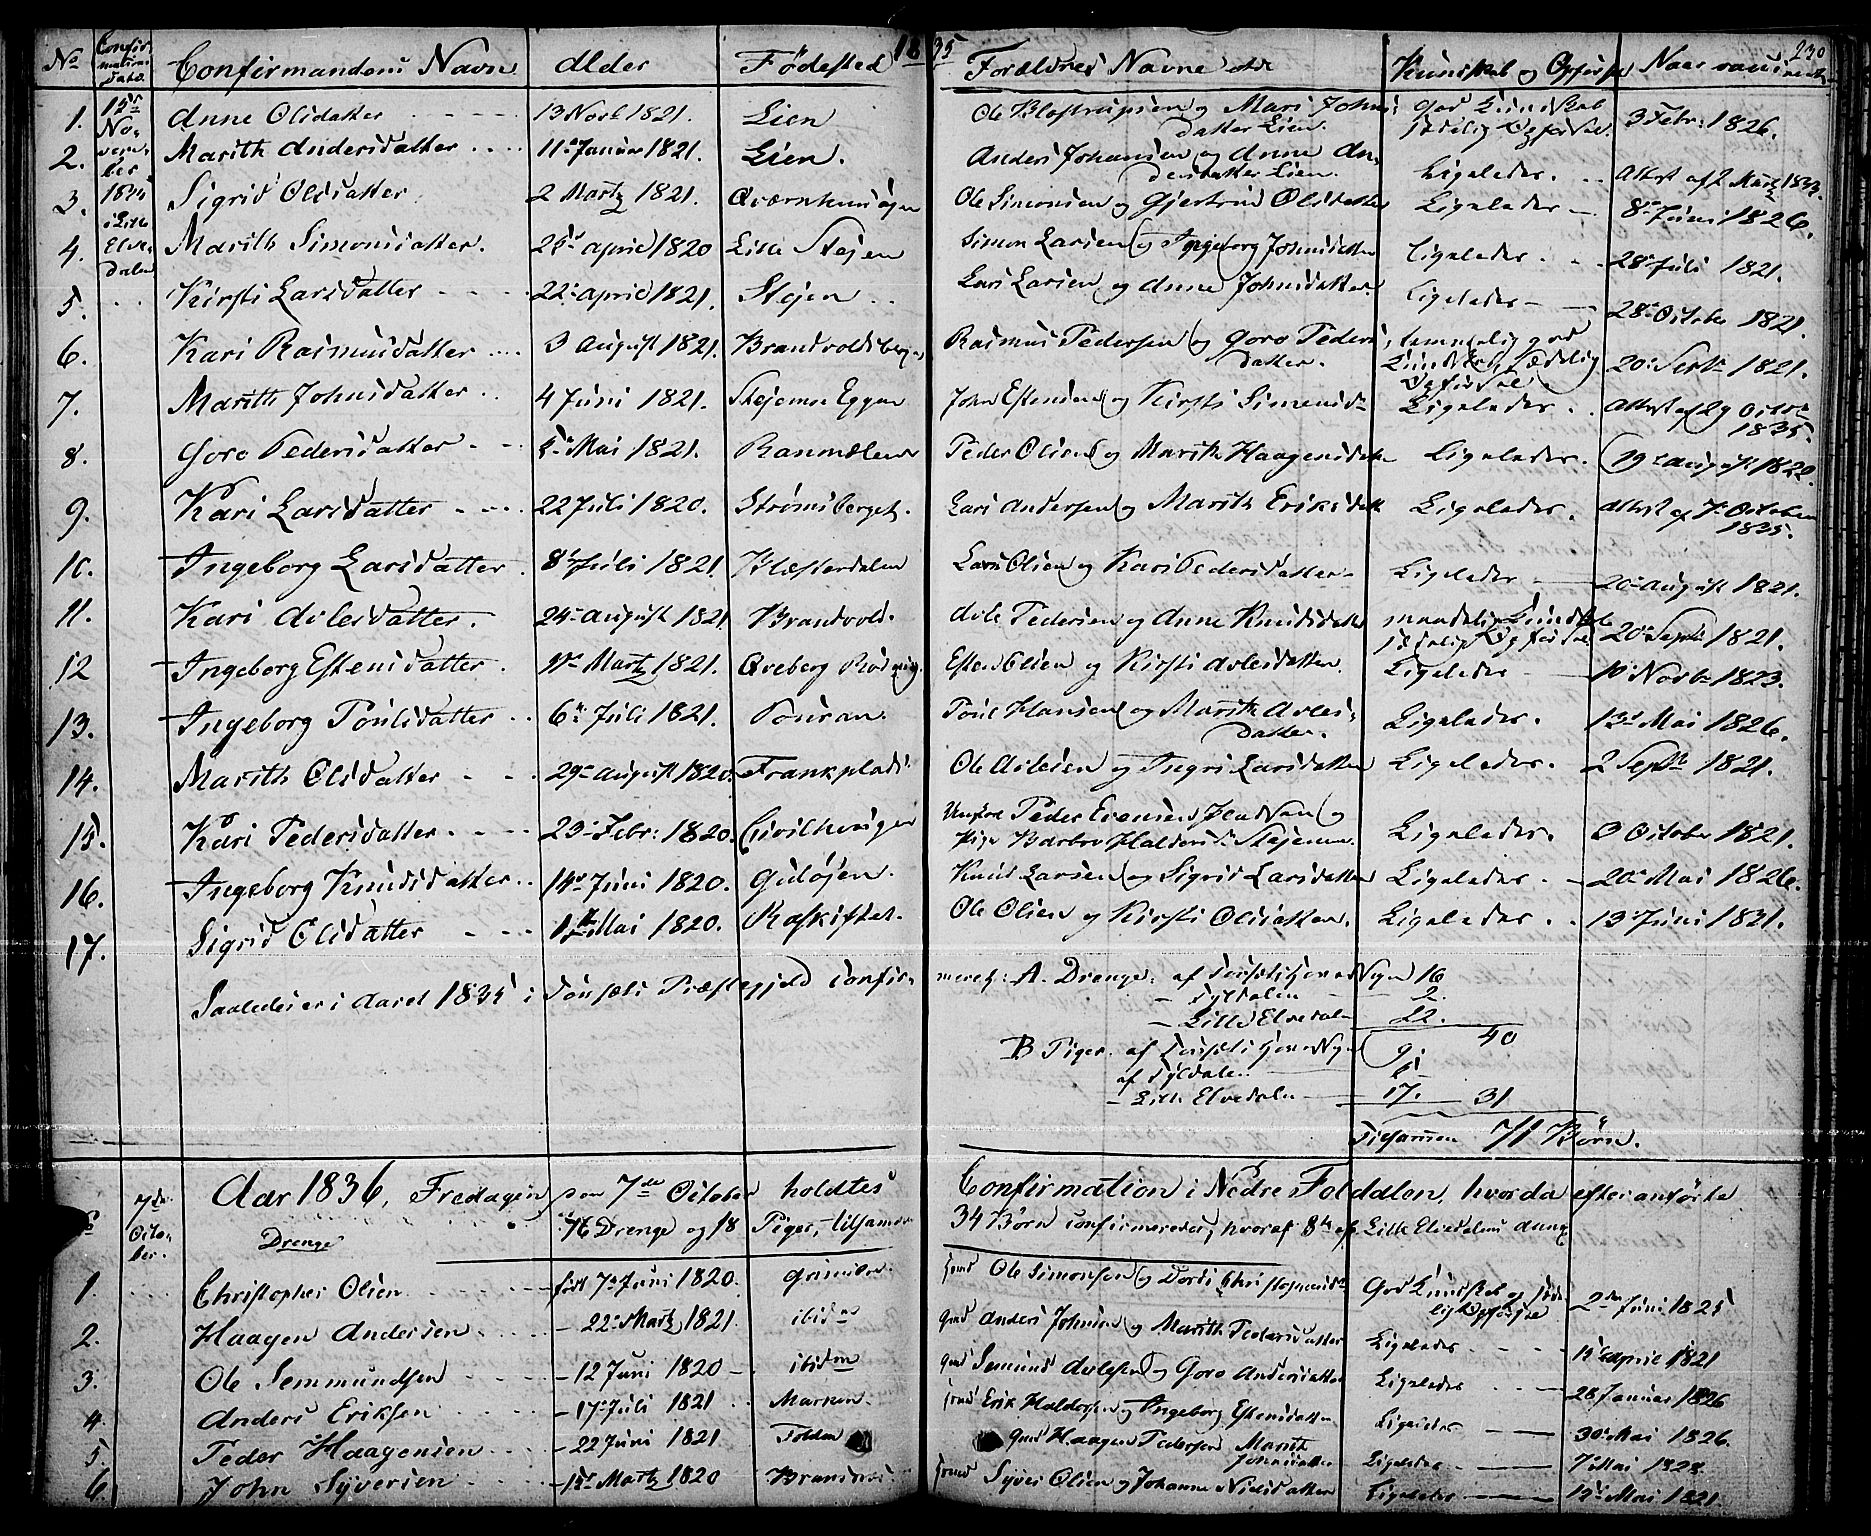 18 35
230
No Confirmations Dato Confirmandens Navn Alder Fødested Forældres Navne etc Kundskab og Opførsel Naar vaccineret
15de November 1835 i Lille Elvedalen
1. Anne Olsdatter 13 Novbr 1821. Lien Ole Mari Johnsdatter Lien. god Kundskab sædelig Opførsel. 3 Febr: 1826.
2. Marith Andersdatter 11 Januar 1821. Lien. Anders Johansen og Anne Andersdatter Lien. Ligeledes. Attest af 2 Martz 1833.
3. Sigrid Olsdatter 2 Martz 1821. Ole Simonsen og Gjertrud Olsdatter Ligeledes 8de Juni 1826.
4. Marith Simonsdatter. 25de april 1820 Lille Stejen Simon Larsen og Ingeborg Johnsdatter Ligeledes 28de Juli 1821.
5. Kirsti Larsdatter 22de april 1821. Stejen Lars Larsen og Anne Johnsdatter. Ligeledes 28de October 1821.
6. Kari Rasmusdatter 3 August 1821. Rasmus Pedersen og Goro Pedersdatter. temmelig god Kundskab, sædelig Opførsel 20de Septbr 1821.
7. Marith Johnsdatter 4 Juni 1821. Stejens Eggen John Estensen og Kirsti Simensdr Ligeledes Attest af 29 Octbr 1835.
8. Goro Pedersdatter 5te Mai 1821. Peder Olsen og Marith Haagensdatter Ligeledes. 19de august 1822.
9. Kari Larsdatter 22 Juli 1820. Strømsberget. Lars Andersen og Marith Eriksdatter Ligeledes. Attest af 7de October 1835.
10. Ingeborg Larsdatter 8de Juli 1821. Kløfterdalen Lars Olsen og Kari Pedersdatter Ligeledes 20de august 1821.
11. Kari Avlesdatter. 24de august 1821 Brandvold. Avle Pedersen og Anne Knudsdatter maadelig Kundskab sædelig Opførsel 20de Septbr 1821.
12 Ingeborg Estensdatter Martz 1821. Esten Olsen og Kirsti Avlesdatter. Ligeledes 10de Novbr 1823.
13. Ingeborg Poulsdatter 6te Juli 1821. Poul Hansen og Marith Avlesdatter. Ligeledes. 13de Mai 1826.
14. Marith Olsdatter 29de august 1820. Frankplads Ole Avlesen og Ingri Larsdatter Ligeledes. 2 Septbr 1821.
15. Kari Pedersdatter 23de Febr: 1820. Peder Evensen og Pige Barbro Haldorsdr Stejen. Ligeledes. October 1821.
16. Ingeborg Knudsdatter 14de Juni 1820. Knud Larsen og Sigrid Larsdatter Ligeledes. 20de Mai 1826.
17. Sigrid Olsdatter Mai 1820. Ole Olsen og Kirsti Olsdatter. Ligeledes 13de Juni 1831.
Saaledes er i Aaret 1835 i Tønsets Præstegjeld confirmeret: A. Drenge. af Tønsets Hoved Sogn 16
- Tyldalen 2.
- Lille Elvedalen 22.
40
B Piger. af Tønsets Hoved Sogn 9
af Tyldalen 5
- Lille Elvedalen 17. 31
Tilsammen 71 Børn.
No 7de October Aar 1836, Fredagen den 7de October holdtes Confirmation i Nedre Folddalen, hvorda efteranførte
Drenge 16 Drenge og 18 Piger, tilsammen 34 Børn confirmeredes, hvoraf 8te af Lille Elvedalens Annex
1. Christopher Olsen født 7de Juni 1820. Grimsbo Ole Simonsen og Dordi Christophersdr God Kundskab og sædelig Opførsel 2den Juni 1825
2. Haagen Andersen 22de Martz 1821. ibidem Anders Johnsen og Marith Pedersdatter Ligeledes 12te april 1821
3. Ole Semmundsen 12 Juni 1820 ibidem Semund Avlesen og Goro Andersdatter Ligeledes 28 Januar 1826
4. Anders Eriksen 17de Juli 1821 Erik Haldorsen og Ingeborg Estensdatter Ligeledes 30de Mai 1826.
5. Peder Haagensen 22 Juni 1821 Folden Haagen Pedersen Marith Johnsdatter Ligeledes 7 Mai 1828
6. John Syversen Martz 1820 Syver Olsen og Johanne Nielsdatter Ligeledes 12te Mai 1821